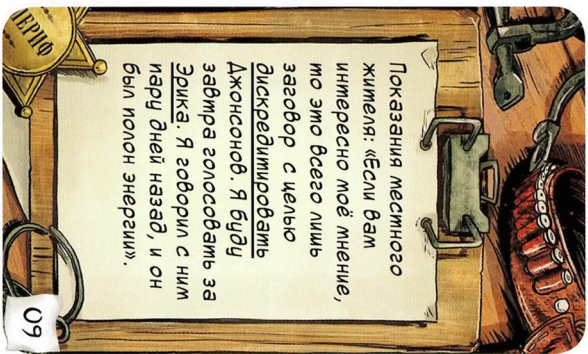 ШЕРИФ
Показания местного
жителя: «Если вам
интересно моё мнение,
то это всего лишь
заговор с целью
дискредитировать
Джонсонов. Я буду
завтра голосовать за
Эрика. Я говорил с ним
пару дней назад, и он
был полон энергии».
09